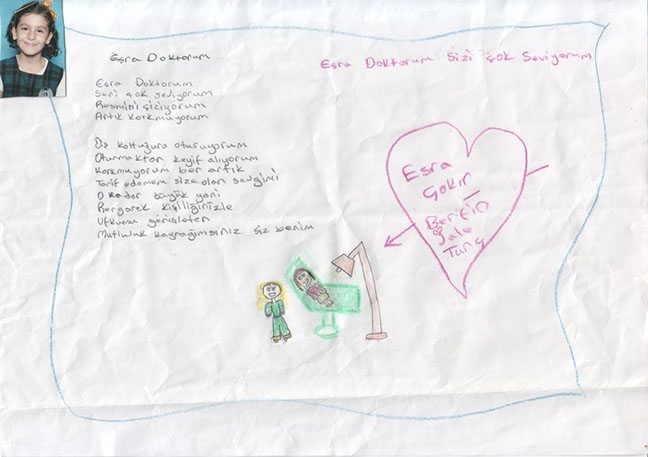 Esra Doktorum
Esra Doktorum
Seni çok seviyorum
Resmini çiziyorum
Artık korkmuyorum
Diş koltuğuna oturuyorum
Oturmaktan keyif alıyorum
Korkmuyorum ben artık
Tarif edemem size olan sevgimi
O kadar büyük yani
Rengarek kişiliğinizle
Ufkumu genişleten
Mutluluk kaynağımsınız siz benim
Esra Doktorum Sizi Çok Seviyorum
Esra
Çakır
Jale
Tunç